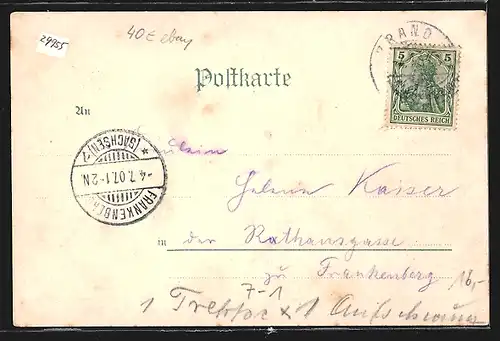 29955
40€ ebay
BRAND
Postkarte
5 5
DEUTSCHES REICH
An
* (SACHSEN) *
-4.7.07.1-2N.
FRANKENBERG
Fräulein
Helene Kaiser
in der Rathausgasse
zu Frankenberg
16,-
7-1
1 Treppe x 1 Aufschwung